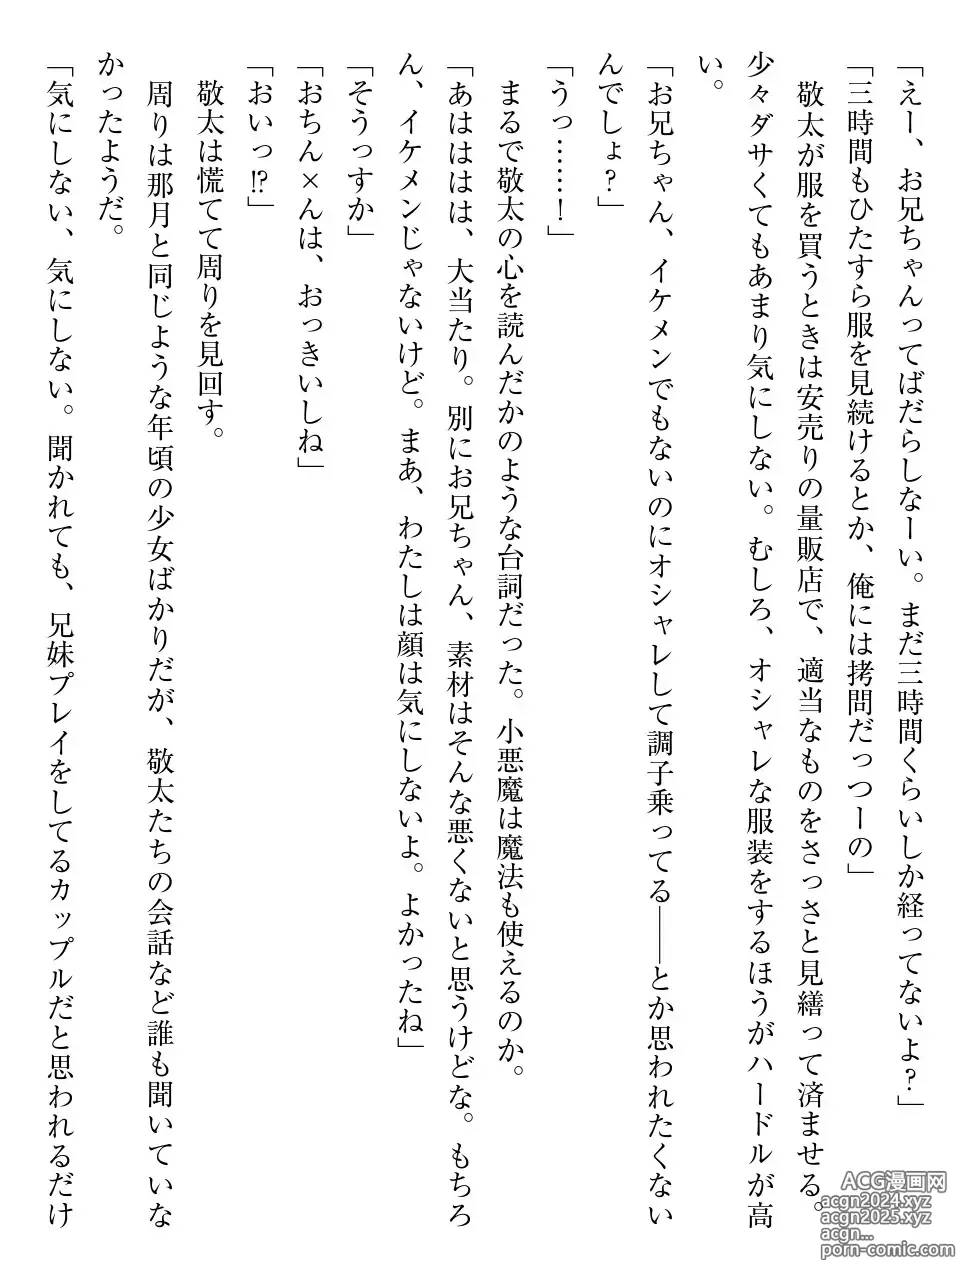 「えー、お兄ちゃんってばだらしなーい。まだ三時間くらいしか経ってないよ?」
「三時間もひたすら服を見続けるとか、俺には拷問だっつーの」
　敬太が服を買うときは安売りの量販店で、適当なものをさっさと見繕って済ませる。
少々ダサくてもあまり気にしない。むしろ、オシャレな服装をするほうがハードルが高
い。
「お兄ちゃん、イケメンでもないのにオシャレして調子乗ってる――とか思われたくない
んでしょ?」
「うっ……!」
　まるで敬太の心を読んだかのような台詞だった。小悪魔は魔法も使えるのか。
「あははは、大当たり。別にお兄ちゃん、素材はそんな悪くないと思うけどな。もちろ
ん、イケメンじゃないけど。まあ、わたしは顔は気にしないよ。よかったね」
「そうっすか」
「おちん×んは、おっきいしね」
「おいっ!?」
　敬太は慌てて周りを見回す。
　周りは那月と同じような年頃の少女ばかりだが、敬太たちの会話など誰も聞いていな
かったようだ。
「気にしない、気にしない。聞かれても、兄妹プレイをしてるカップルだと思われるだけ
ACG漫画网
acgn2024.xyz
acgn2025.xyz
acgn...
porn-comic.com